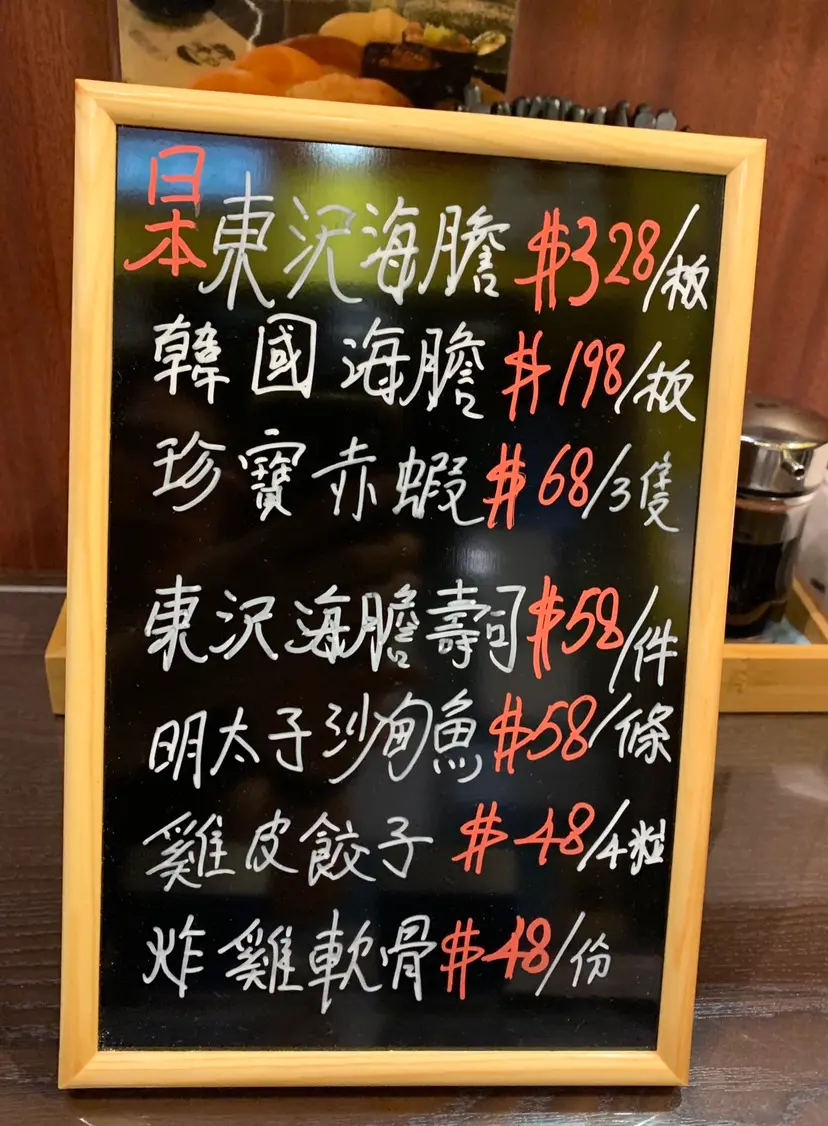 日本東沢海膽 $328/板
韓國海膽 $198/板
珍寶赤蝦 $68/3隻
東沢海膽壽司 $58/件
明太子沙甸魚 $58/條
雞皮餃子 $48/4粒
炸雞軟骨 $48/份